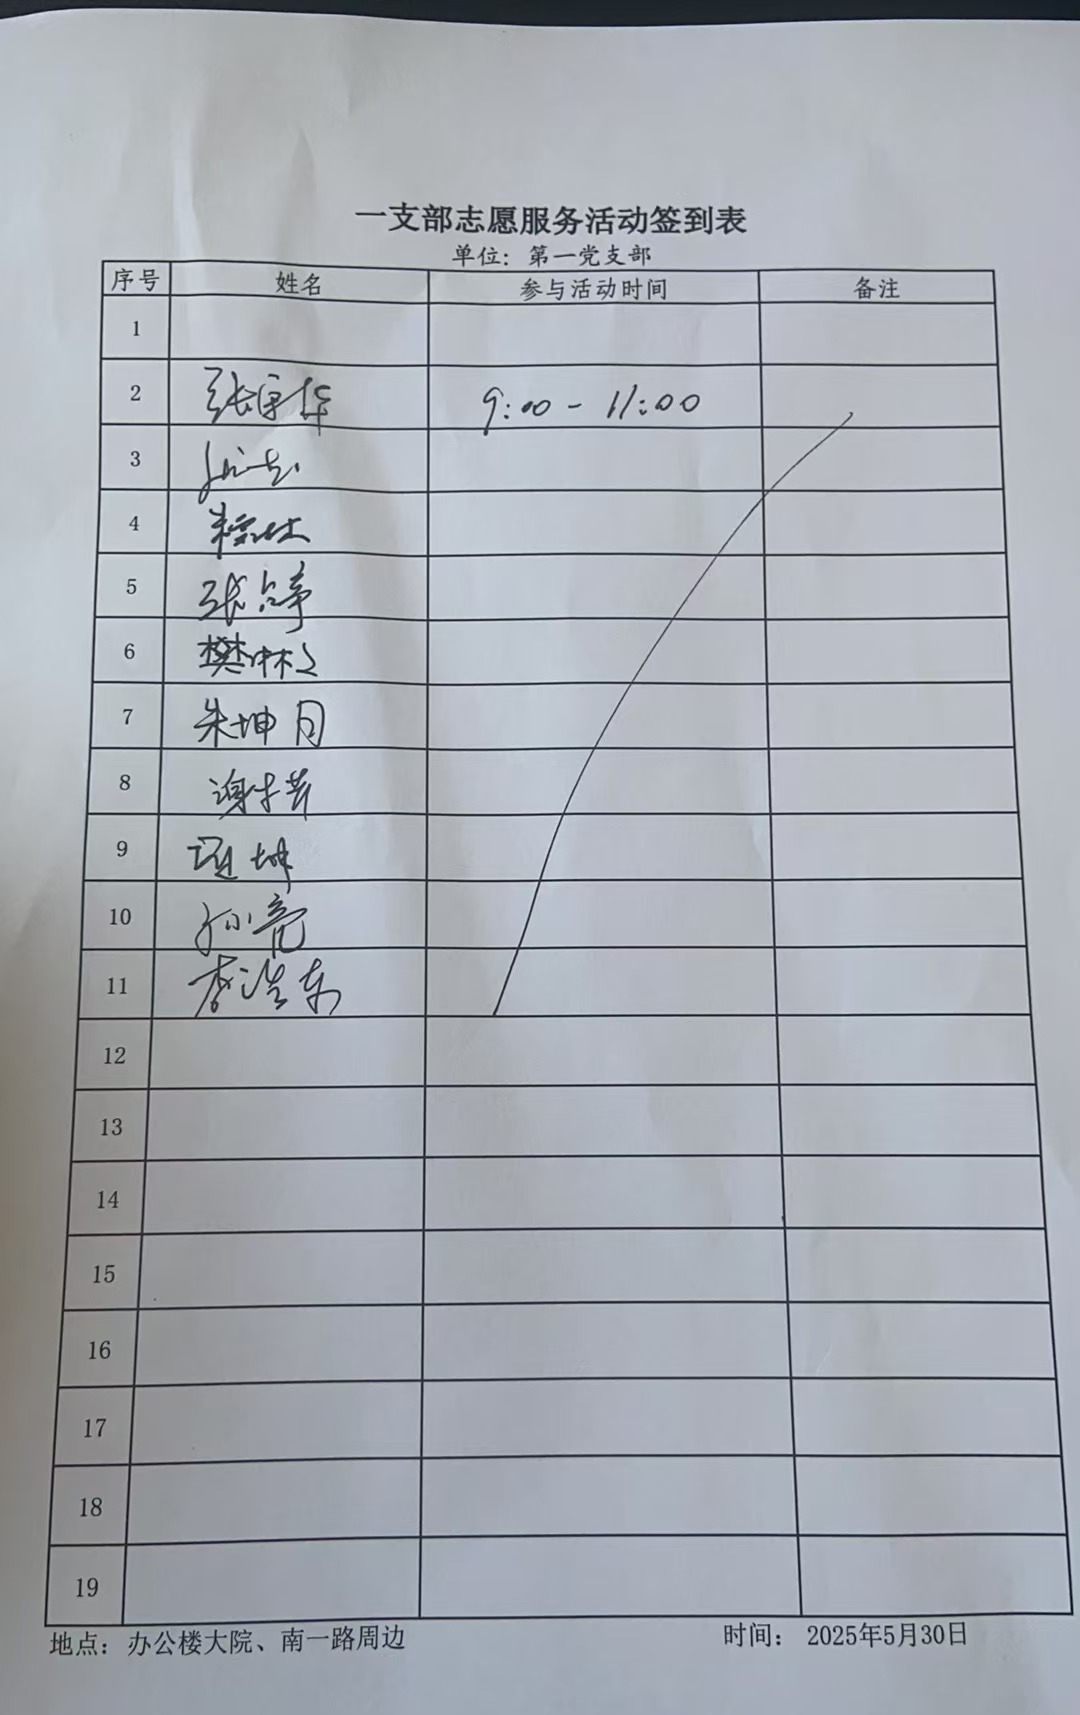 一支部志愿服务活动签到表
单位：第一党支部
序号 姓名 参与活动时间 备注
1
2 9:00 - 11:00
3
4
5
6
7 朱坤月
8
9
10 孙亮
11 李浩东
12
13
14
15
16
17
18
19
地点：办公楼大院、南一路周边 时间： 2025年5月30日